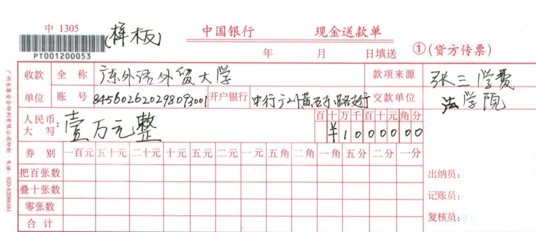 中 1305 (样板) 中国银行 现金送款单
PT001200053 年 月 日填送 ①(贷方传票)
收款 全称 广东外语外贸大学 款项来源 张三学费
单位 账号 845602620298093001 开户银行 中行广州 支行 交款单位 法学院
人民币: 壹万元整 百十万千百十元角分
大写 ¥1000000
券别 一百元 五十元 二十元 十元 五元 二元 一元 五角 二角 一角 五分 二分 一分
把百张数 出纳员:
叠十张数 记账员:
零张数
合计 复核员: